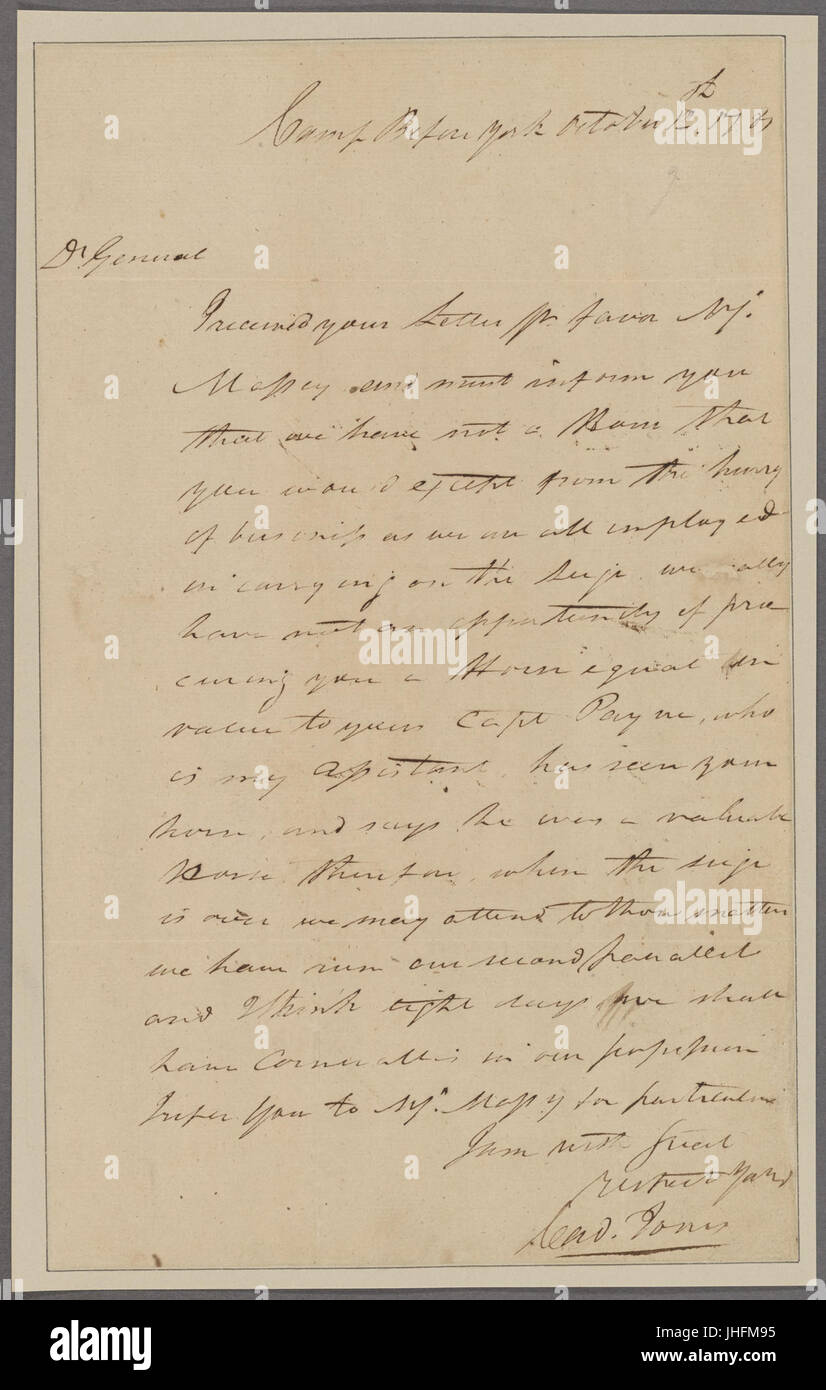 Camp Before York October 12th. 1781
Dr General
I received your Letter pr favor Mjr.
Massey and must inform you
that we have not a Horse that
you wou'd except from the hurry
of business as we are all employed
in carrying on the Seige, we
have not an opportunity of pro
curing you a Horse equal in
value to yours Capt Payne, who
is my Assistant, has seen your
horse, and says he was a valuable
Horse therefore, when the seige
is over we may attend to those matters
we have run our second parallel
and I think eight days we shall
have Cornwallis in our possession
I refer You to Mjr. Massey for particulars
I am with Great
respect Yours
Cad. Jones
alamy stock photo
JHFM95
www.alamy.com